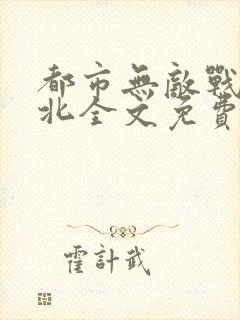 都市無敵戰
北全文免費
霍計武